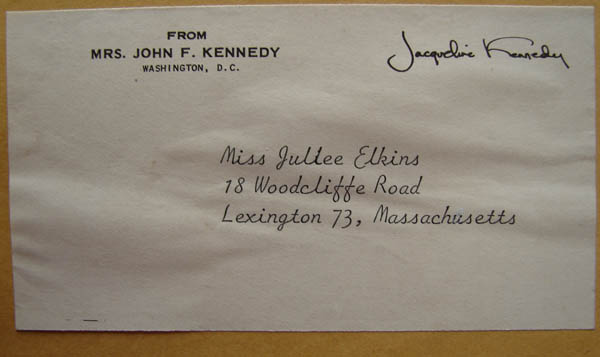 FROM
MRS. JOHN F. KENNEDY
WASHINGTON, D.C.
Jacqueline Kennedy
Miss Jullee Elkins
18 Woodcliffe Road
Lexington 73, Massachusetts